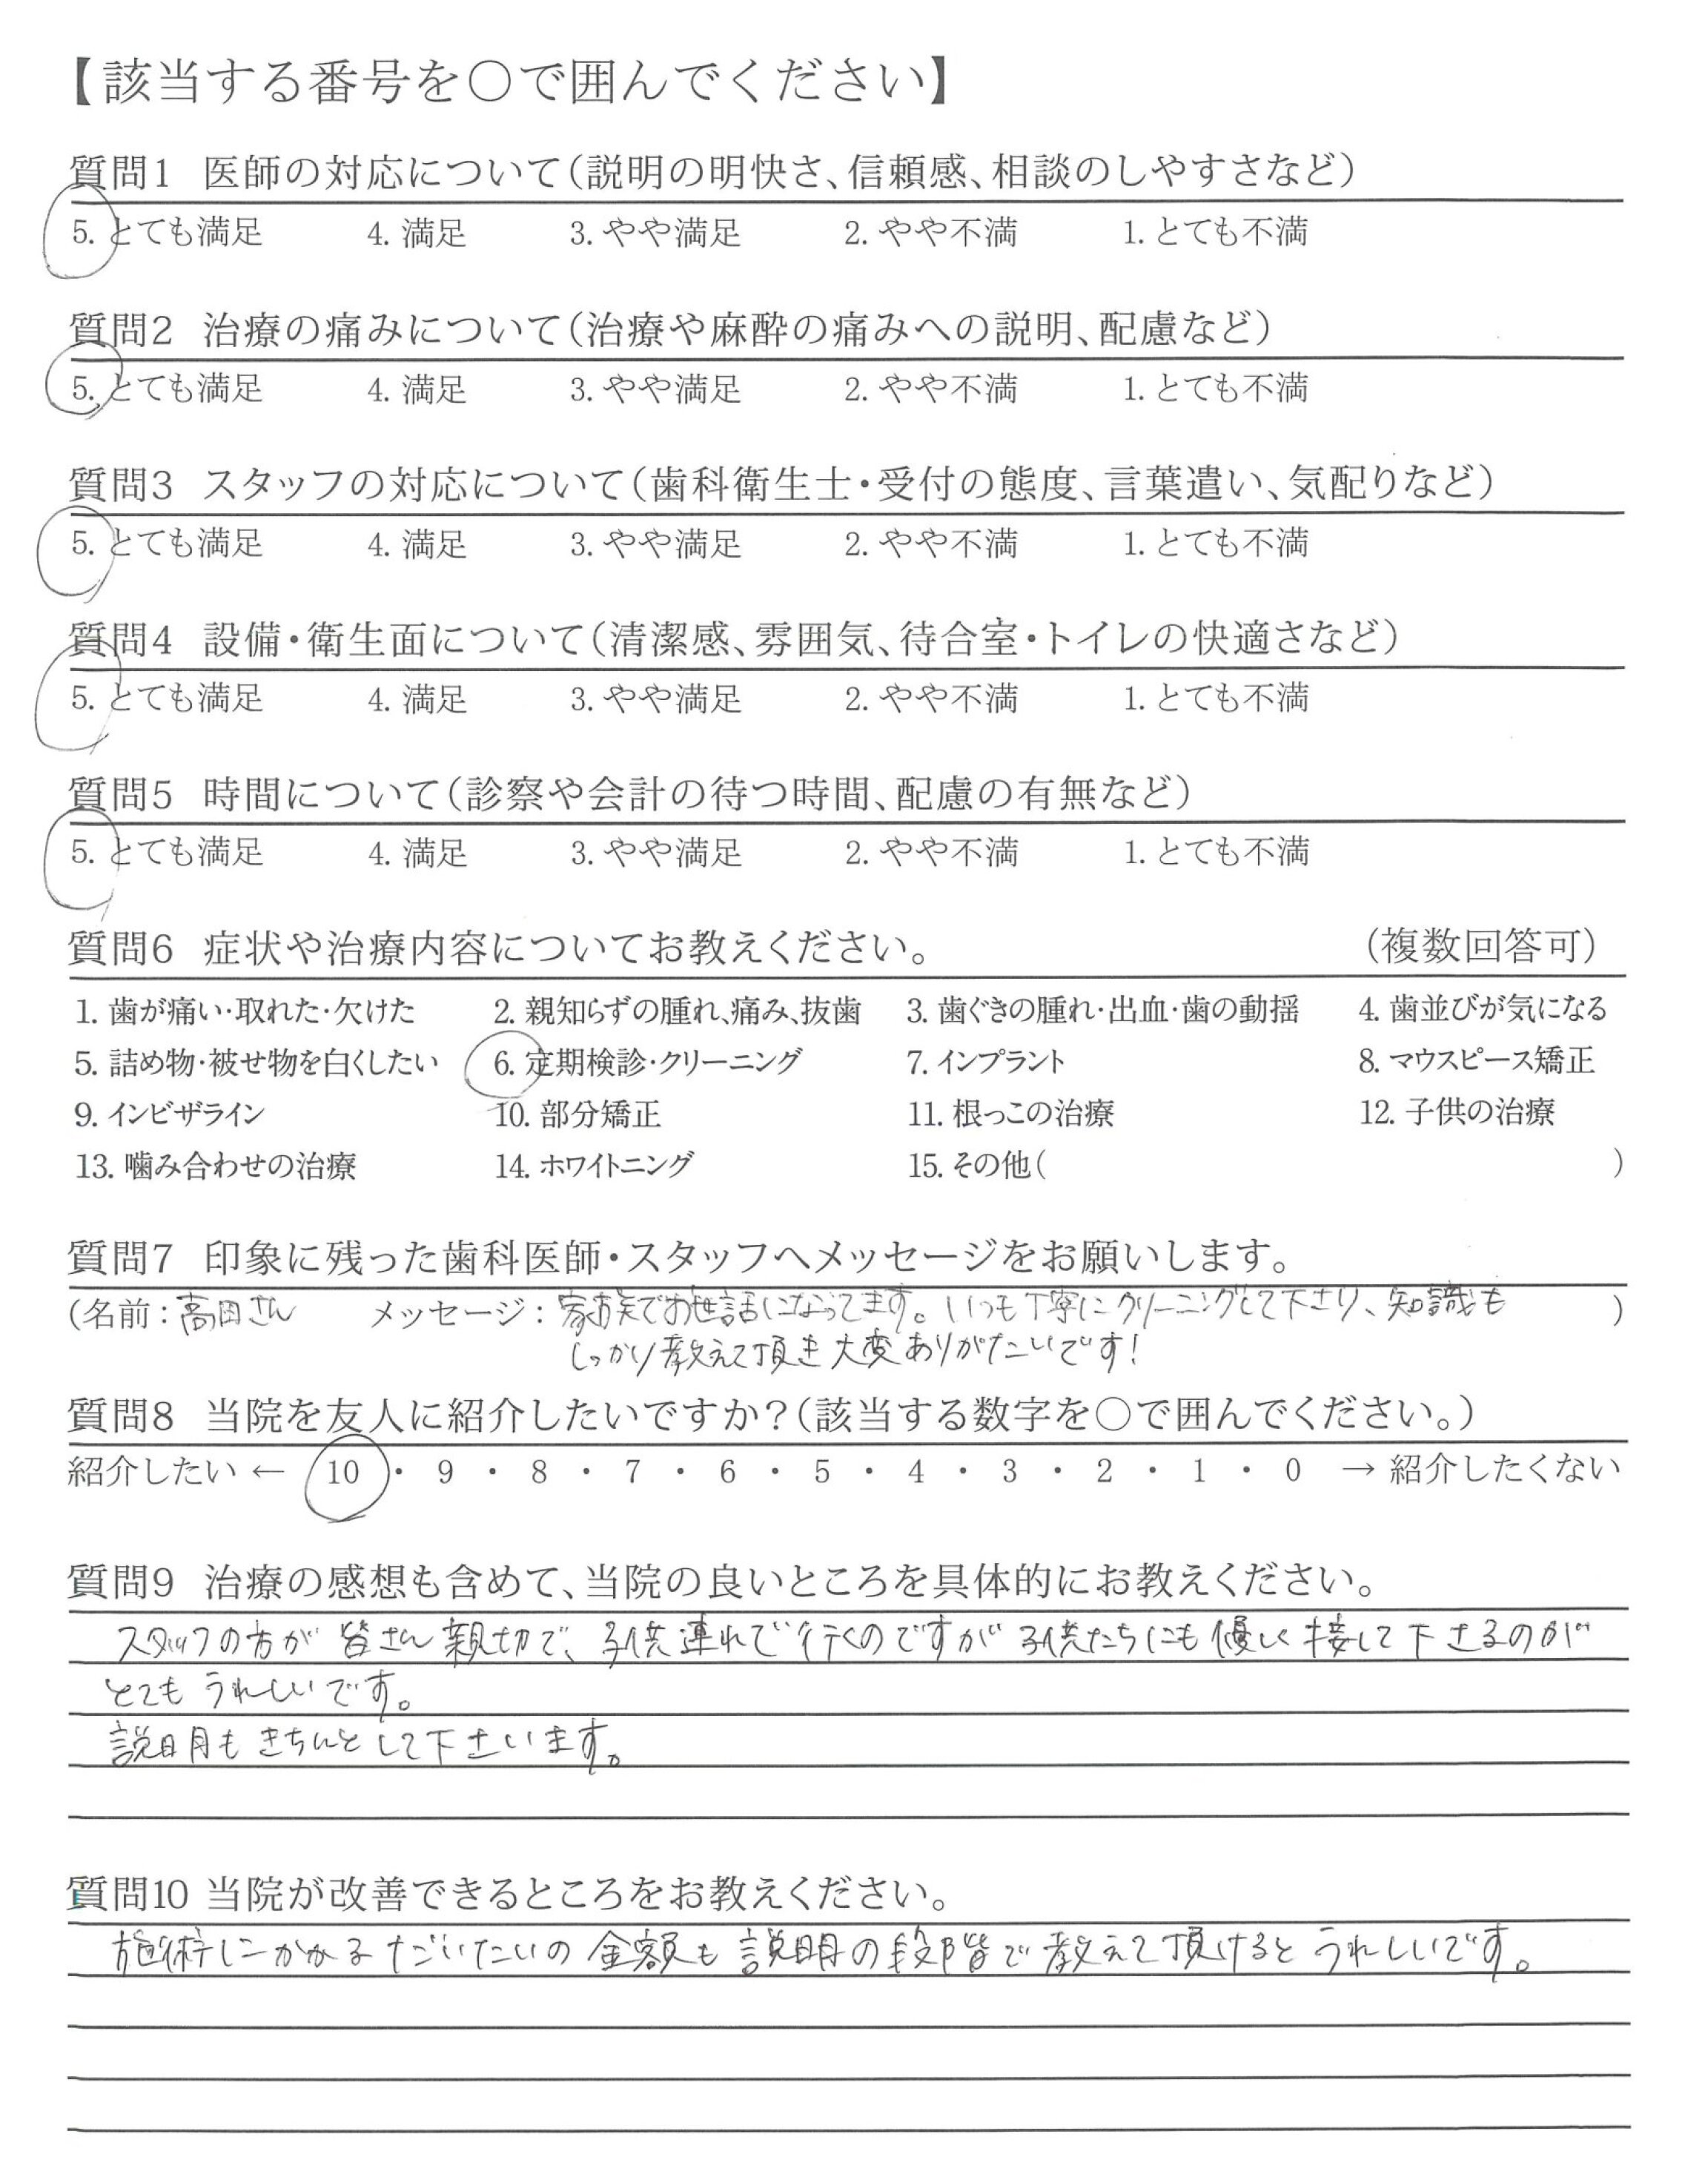 【該当する番号を○で囲んでください】
質問1 医師の対応について（説明の明快さ、信頼感、相談のしやすさなど）
5. とても満足 4. 満足 3. やや満足 2. やや不満 1. とても不満
質問2 治療の痛みについて（治療や麻酔の痛みへの説明、配慮など）
5. とても満足 4. 満足 3. やや満足 2. やや不満 1. とても不満
質問3 スタッフの対応について（歯科衛生士・受付の態度、言葉遣い、気配りなど）
5. とても満足 4. 満足 3. やや満足 2. やや不満 1. とても不満
質問4 設備・衛生面について（清潔感、雰囲気、待合室・トイレの快適さなど）
5. とても満足 4. 満足 3. やや満足 2. やや不満 1. とても不満
質問5 時間について（診察や会計の待つ時間、配慮の有無など）
5. とても満足 4. 満足 3. やや満足 2. やや不満 1. とても不満
質問6 症状や治療内容についてお教えください。 （複数回答可）
1. 歯が痛い・取れた・欠けた 2. 親知らずの腫れ、痛み、抜歯 3. 歯ぐきの腫れ・出血・歯の動揺 4. 歯並びが気になる
5. 詰め物・被せ物を白くしたい 6. 定期検診・クリーニング 7. インプラント 8. マウスピース矯正
9. インビザライン 10. 部分矯正 11. 根っこの治療 12. 子供の治療
13. 噛み合わせの治療 14. ホワイトニング 15. その他（ ）
質問7 印象に残った歯科医師・スタッフへメッセージをお願いします。
（名前：高田さん メッセージ：家族でお世話になってます。いつも丁寧にクリーニングして下さり、知識も ）
しっかり教えて頂き大変ありがたいです！
質問8 当院を友人に紹介したいですか？（該当する数字を○で囲んでください。）
紹介したい ← 10 ・ 9 ・ 8 ・ 7 ・ 6 ・ 5 ・ 4 ・ 3 ・ 2 ・ 1 ・ 0 → 紹介したくない
質問9 治療の感想も含めて、当院の良いところを具体的にお教えください。
スタッフの方が皆さん親切で、子供連れで行くのですが子供たちにも優しく接して下さるのが
とてもうれしいです。
説明もきちんとして下さいます。
質問10 当院が改善できるところをお教えください。
施術にかかるだいたいの金額も説明の段階で教えて頂けるとうれしいです。